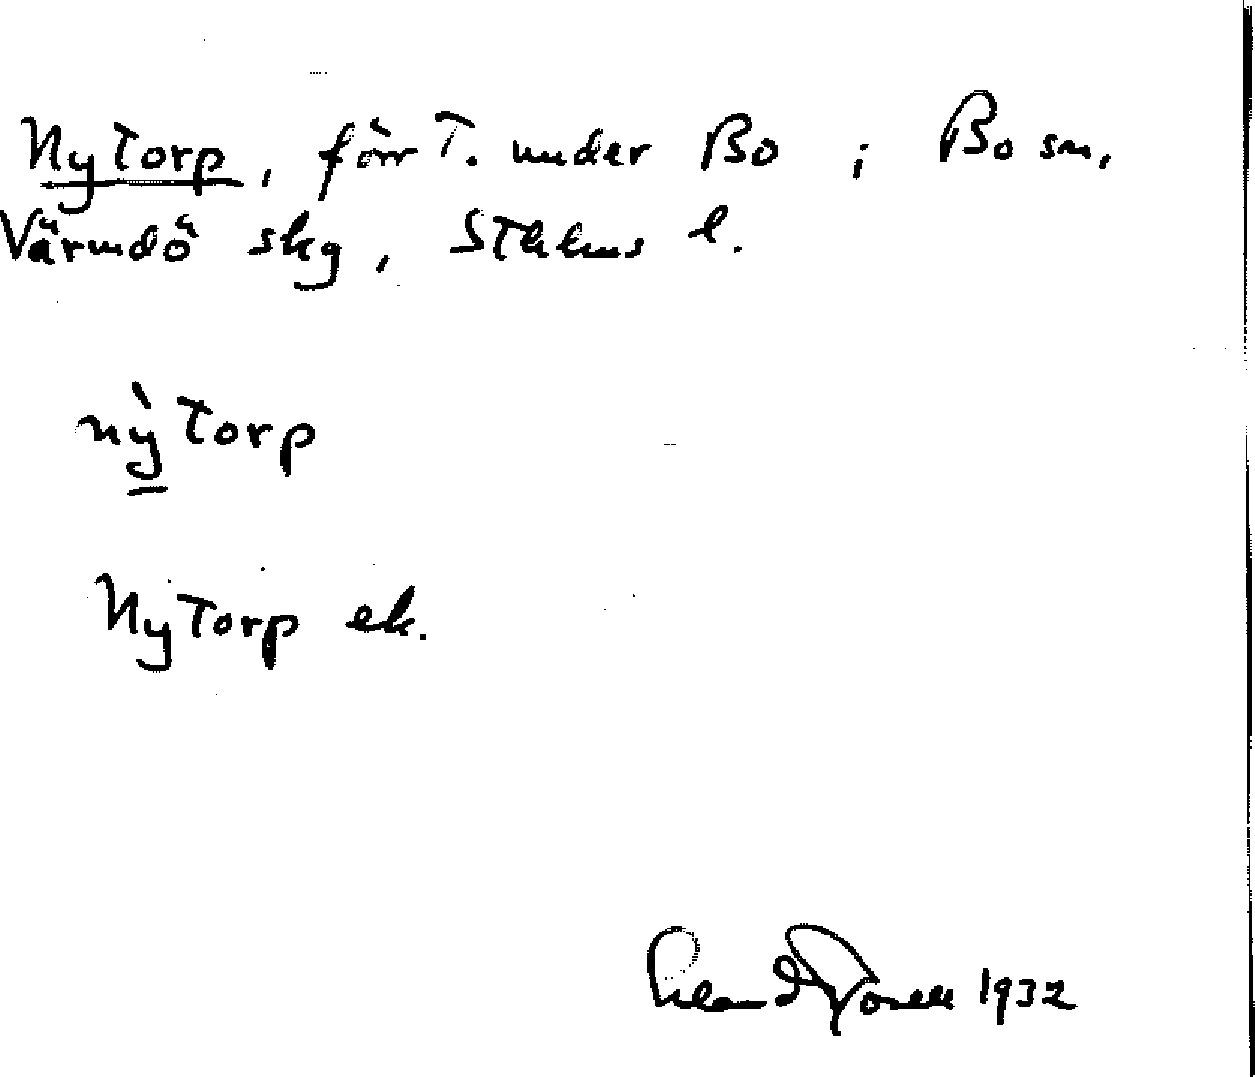 Nytorp, förr T. under Bo i Bo sn,
Värmdö skg, Sthlms l.
nỳtorp
Nytorp ek.
1932